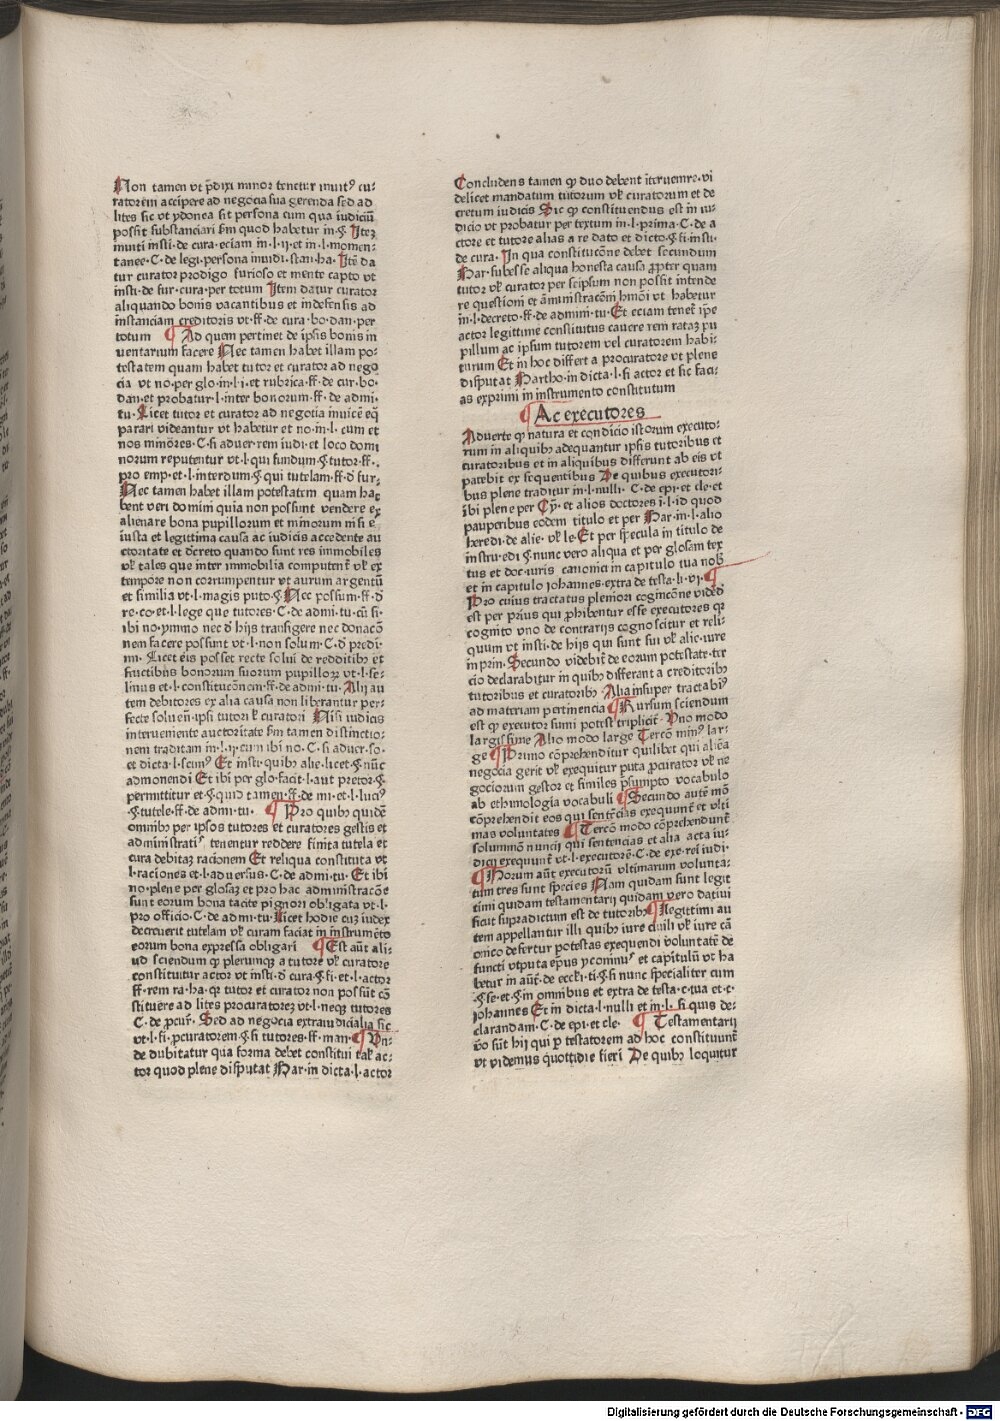 Non tamen vt p̄dixi minor tenetur inuitꝰ cu⸗
ratorem accipere ad negocia sua gerenda sed ad
lites sic vt ydonea sit persona cum qua iudiciū
possit substanciari fm quod habetur in·§ Iteʒ
muiti insti·de cura·eciam in·l·ij·et in·l·momen⸗
tanee·C·de legi·persona inuidi·stan·ha·Itē da
tur curator prodigo furioso et mente capto vt
insti·de fur·cura·per totum Item datur curator
aliquando bonis vacantibus et indefensis ad
instanciam creditoris vt·ff·de cura·bo·dan·per
totum ¶ Ad quem pertinet de ipsis bonis in
uentarium facere Nec tamen habet illam po⸗
testatem quam habet tutor et curator ad nego
cia vt no·per glo·in·l·i·et rubrica·ff·de cur·bo·
dan·et probatur·l·inter bonorum·ff·de admi·
tu·Licet tutor et curator ad negotia inuicē eq̄
parari videantur vt habetur et no·in·l·cum et
nos minōres·C·si aduer·rem iudi·et loco domi
norum reputentur vt·l·qui fundum·§·tutor·ff·
pro emp·et·l·interdum·§·qui tutelam·ff·d̄ fur⸗
Nec tamen habet illam potestatem quam ha⸗
bent veri domini quia non possunt vendere ex
alienare bona pupillorum et minorum nisi e
iusta et legittima causa ac iudicis accedente au
ctoritate et d̄creto quando sunt res immobiles
vꝉ tales que inter immobilia computent̄ vꝉ ex
tempōre non corrumpentur vt aurum argentū
et similia vt·l·magis puto·§·Nec possum·ff·d̄
re·co·et·l·lege que tutores·C·de admi·tu·cū si·
ibi no·ymmo nec d̄ hijs transigere nec donacō
nem facere possunt vt·l·non solum·C·d̄ predi·
mi·Licet eis posset recte solui de redditibꝫ et
fructibus bonorum suorum pupilloꝝ vt·l·se⸗
linus et·l·constitucōnem·ff·de admi·tu·Alij au
tem debitores ex alia causa non liberantur per⸗
fecte soluen·ipsi tutori ꝉ curatori Nisi iudicis
interueniente auctoritate fm tamen distinctio⸗
nem traditam in·l·ij·cum ibi no·C·si aduer·so·
et dicta·l·scimꝰ Et insti·quibꝫ alie·licet·§·nūc
admonendi Et ibi per glo·facit·l·aut pretor·§·
permittitur et·§·quid tamen·ff·de mi·et·l·luciꝰ
·§·tutele·ff·de admi·tu· ¶ Pro quibꝫ quidē
omnibꝫ per ipsos tutores et curatores gestis et
administratiˢ tenentur reddere finita tutela et
cura debitaʒ racionem Et reliqua constituta vt
l·raciones et·l·aduersus·C·de admi·tu·Et ibi
no·plene per glosaʒ et pro hac administracōe
sunt eorum bona tacite pignori obligata vt·l·
pro officio·C·de admi·tu·Licet hodie cuʒ iudex
decreuerit tutelam vꝉ curam faciat in instrumēto
eorum bona expressa obligari ¶ Est aūt ali⸗
ud sciendum ꝙ plerumqꝫ a tutore vꝉ curatore
constituitur actor vt insti·d̄ cura·§·fi·et·l·actor
ff·rem ra·ha·ꝙ tutor et curator non possūt cō
stituere ad lites procuratoreʒ vt·l·neqꝫ tutores
C·de ꝓcur̄·Sed ad negocia extraiudicialia sic
vt·l·fi·ꝓcuratorem·§·si tutores·ff·man·¶ Vn⸗
de dubitatur qua forma debet constitui talꝭ ac⸗
tor quod plene disputat Bar·in dicta·l·actor
Concludens tamen ꝙ duo debent ītervenire·vi
delicet mandatum tutorum vꝉ curatorum et de
cretum iudicis Sic ꝙ constituendus est in iu⸗
dicio vt probatur per textum in·l·prima·C·de a
ctore et tutore alias a re dato et dicto·§·fi·insti·
de cura·In qua constitucōne debet secundum
Bar·subesse aliqua honesta causa ꝓpter quam
tutor vꝉ curator per seipsum non possit intende
re questioni et āministracōni hmōi vt habetur
in·l·decreto·ff·de admini·tu·Et eciam tenet̄ ipe
actor legittime constitutus cauere rem rataʒ pu
pillum ac ipsum tutorem vel curatorem habi⸗
turum Et in hoc differt a procuratore vt plene
disputat Bartho·in dicta·l·fi actor et sic faci⸗
as exprimi in instrumento constitutum
¶ Ac executores
Aduerte ꝙ natura et condicio istorum executo⸗
rum in aliquibꝫ adequantur ipsis tutoribus et
curatoribus et in aliquibus differunt ab eis vt
patebit ex sequentibus De quibus executori⸗
bus plene traditur in·l·nulli· C·de epi·et cle·et
ibi plene per Cy·et alios doctores ī·l·id quod
pauperibus eodem titulo et per Bar·in·l·alio
heredi·de alie·vꝉ le·Et per specula in titulo de
instru·edi·§·nunc vero aliqua et per glosam tex
tus et doc·iuris canonici in capitulo tua nob̄
et in capitulo iohannes·extra de testa·li·vi·¶
Pro cuius tractatus pleniori cognicōne vided̄
est per prius qui ꝓhibentur esse executores qꝛ
cognito vno de contrarijs cognoscitur et reli⸗
quum vt insti·de hijs qui sunt sui vꝉ alie·iure
in prin·Secundo videbit̄ de eorum potestate·ter
cio declarabitur in quibꝫ differant a creditoribꝫ
tutoribus et curatoribꝫ Alia insuper tractabiꝰ
ad materiam pertinencia ¶ Rursum sciendum
est ꝙ executor sumi potest tripliciť Vno modo
largissime Alio modo large Tercō minꝰ lar⸗
ge ¶ Primo cōprehenditur quilibet qui aliēa
negocia gerit vꝉ exequitur puta ꝓcurator vꝉ ne
gociorum gestor et similes p̄sumpto vocabulo
ab ethimologia vocabuli ¶ Secundo autē mō
cōprehendit eos qui sentēcias exequunt̄ et vlti
mas voluntates ¶ Tercō modo cōprehendunt̄
solummō nuncij qui sentencias et alia acta iu⸗
dicij exequunt̄ vt·l·executorē·C·de exe·rei iudi·
¶ Horum aūt executorū vltimarum volunta⸗
tum tres sunt species Nam quidam sunt legit
timi quidam testamentarij quidam vero dativi
sicut supradictum est de tutoribꝫ ¶ Legittimi au
tem appellantur illi quibꝫ iure ciuili vꝉ iure cā
onico defertur potestas exequendi voluntatē de
functi vtputa ep̄us yconomꝰ et capitulū vt ha
betur in aūt·de eccl·ti·§·si nunc specialiter cum
·§·se·et·§·in omnibus et extra de testa·c·tua et·c·
iohannes Et in dicta·l·nulli et in·l·si quis de⸗
clarandam·C·de epi·et cle· ¶ Testamentarij
v̄o sūt hij qui ꝑ testatorem ad hoc constituunt̄
vt videmus quottidie fieri De quibꝫ loquitur
Digitalisierung gefördert durch die Deutsche Forschungsgemeinschaft - DFG